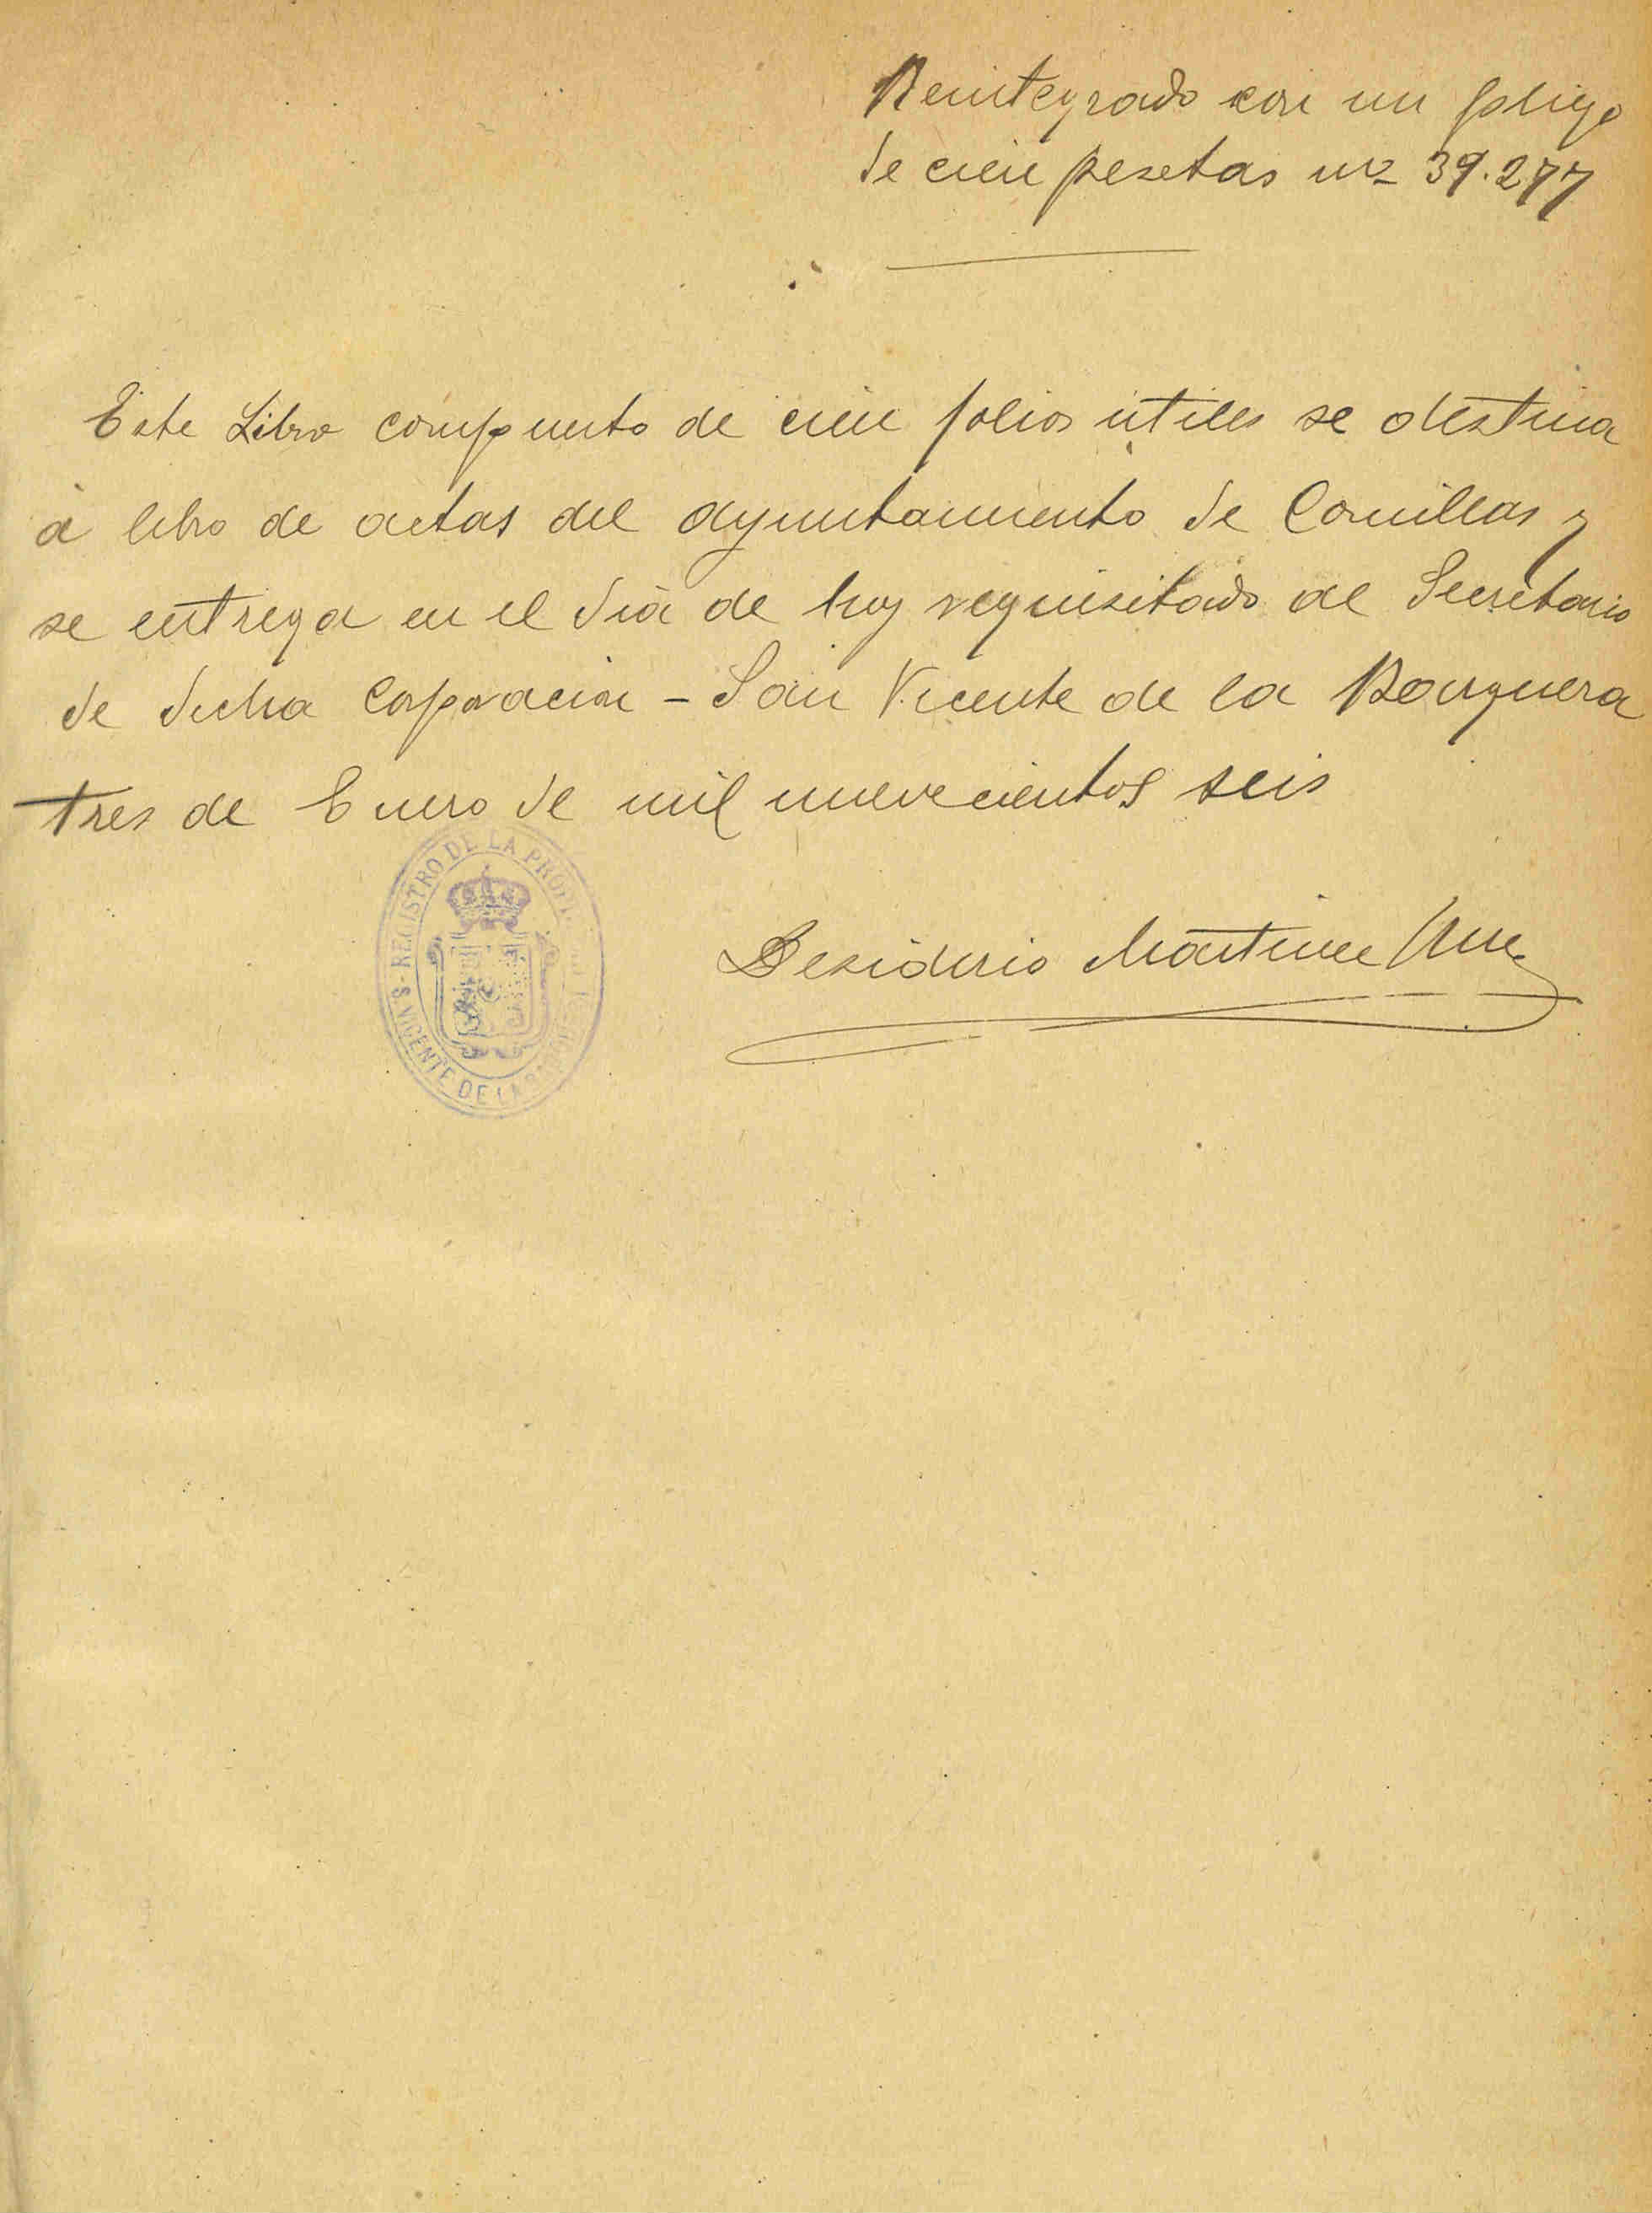 Reintegrado con un pliego
de cien pesetas nº 39.277
Este Libro compuesto de cien folios utiles se destina
á libro de actas del ayuntamiento de Comillas y
se entrega en el dia de hoy requisitado al Secretario
de dicha Corporacion - San Vicente de la Barquera
tres de Enero de mil nuevecientos seis
REGISTRO DE LA PROP
S. VICENTE DE LA BARQUE
Desiderio Martinez